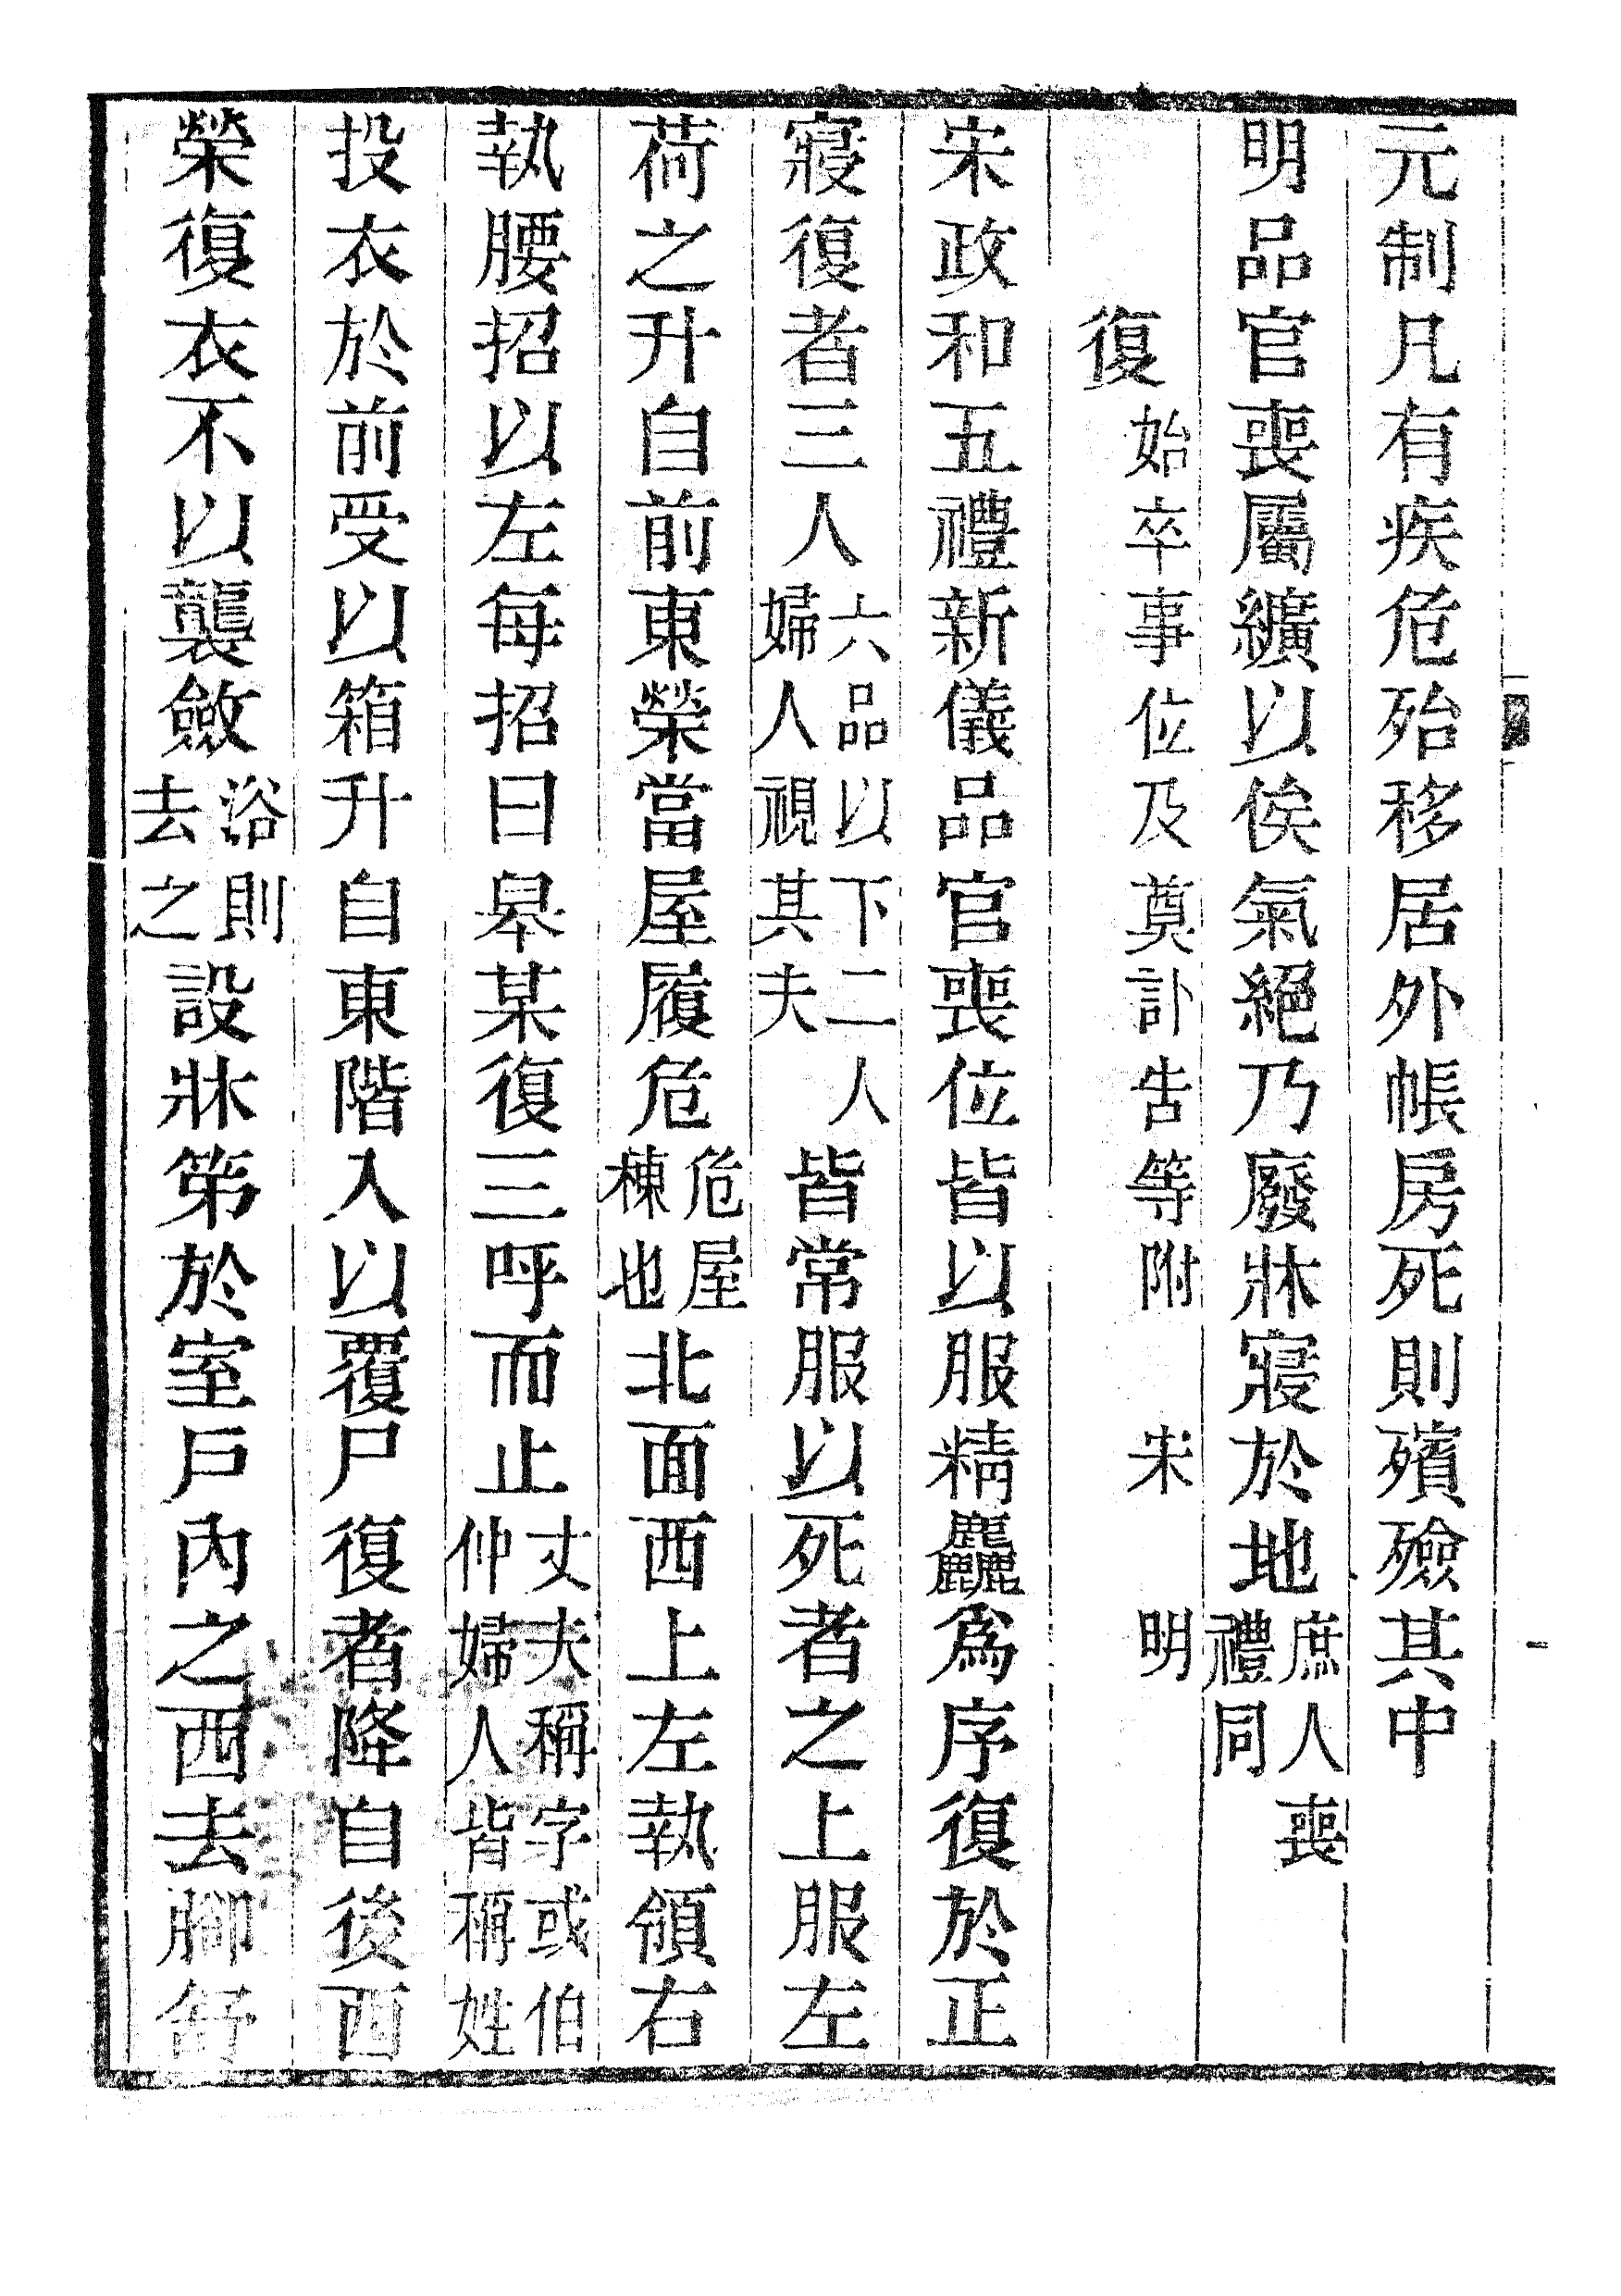 元制凡有疾危殆移居外帳房死則殯殮其中
明品官喪屬纊以俟氣絕乃廢牀寢於地庶人喪禮同
復始卒事位及奠訃告等附　宋　明
宋政和五禮新儀品官喪位皆以服精麤爲序復於正
寢復者三人六品以下二人婦人視其夫皆常服以死者之上服左
荷之升自前東榮當屋履危危屋棟也北面西上左執領右
執腰招以左每招曰皋某復三呼而止丈夫稱字或伯仲婦人皆稱姓
投衣於前受以箱升自東階入以覆尸復者降自後西
榮復衣不以襲斂浴則去之設牀第於室戶內之西去腳舒